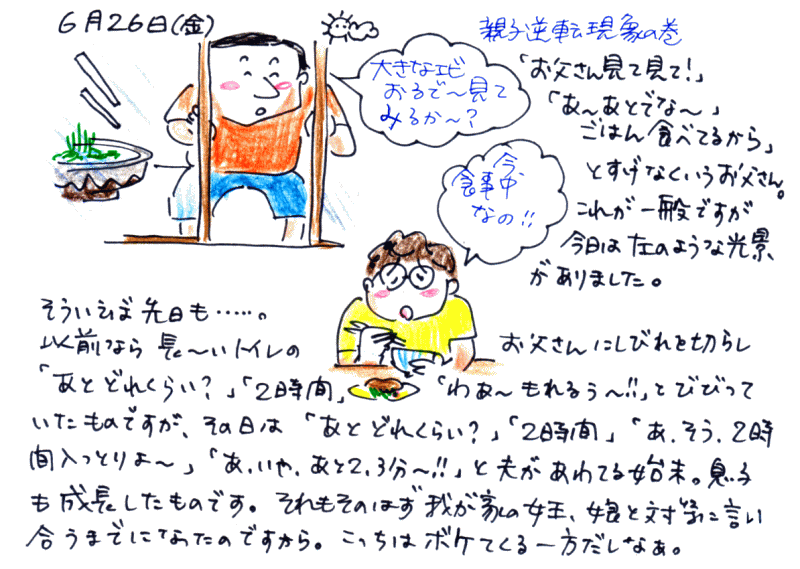 6月26日(金)
親子逆転現象の巻
大きなエビ
おるで〜見て
みるか〜?
「お父さん見て見て!」
「あ〜あとでな〜」
ごはん食べてるから」
とすげなくいうお父さん。
これが一般ですが
今日は左のような光景
がありました。
今、
食事中
なの!!
そういえば先日も‥‥‥。
以前なら長〜いトイレの
お父さんにしびれを切らし
「あとどれくらい?」「2時間」
「わぁ〜もれるぅ〜!!」とびびって
いたものですが、その日は「あとどれくらい?」「2時間」「あ.そう.2時
間入っとりよ〜」「あ.いや.あと2.3分〜!!」と夫があわてる始末。息子
も成長したものです。それもそのはず我が家の女王、娘と対等に言い
合うまでになったのですから。こっちはボケてくる一方だしなぁ。